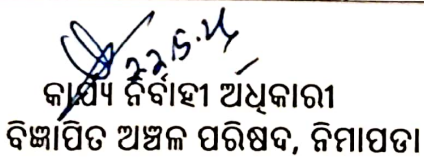 22.5.24
କାର୍ଯ୍ୟ ନିର୍ବାହୀ ଅଧିକାରୀ
ବିଜ୍ଞାପିତ ଅଞ୍ଚଳ ପରିଷଦ, ନିମାପଡା